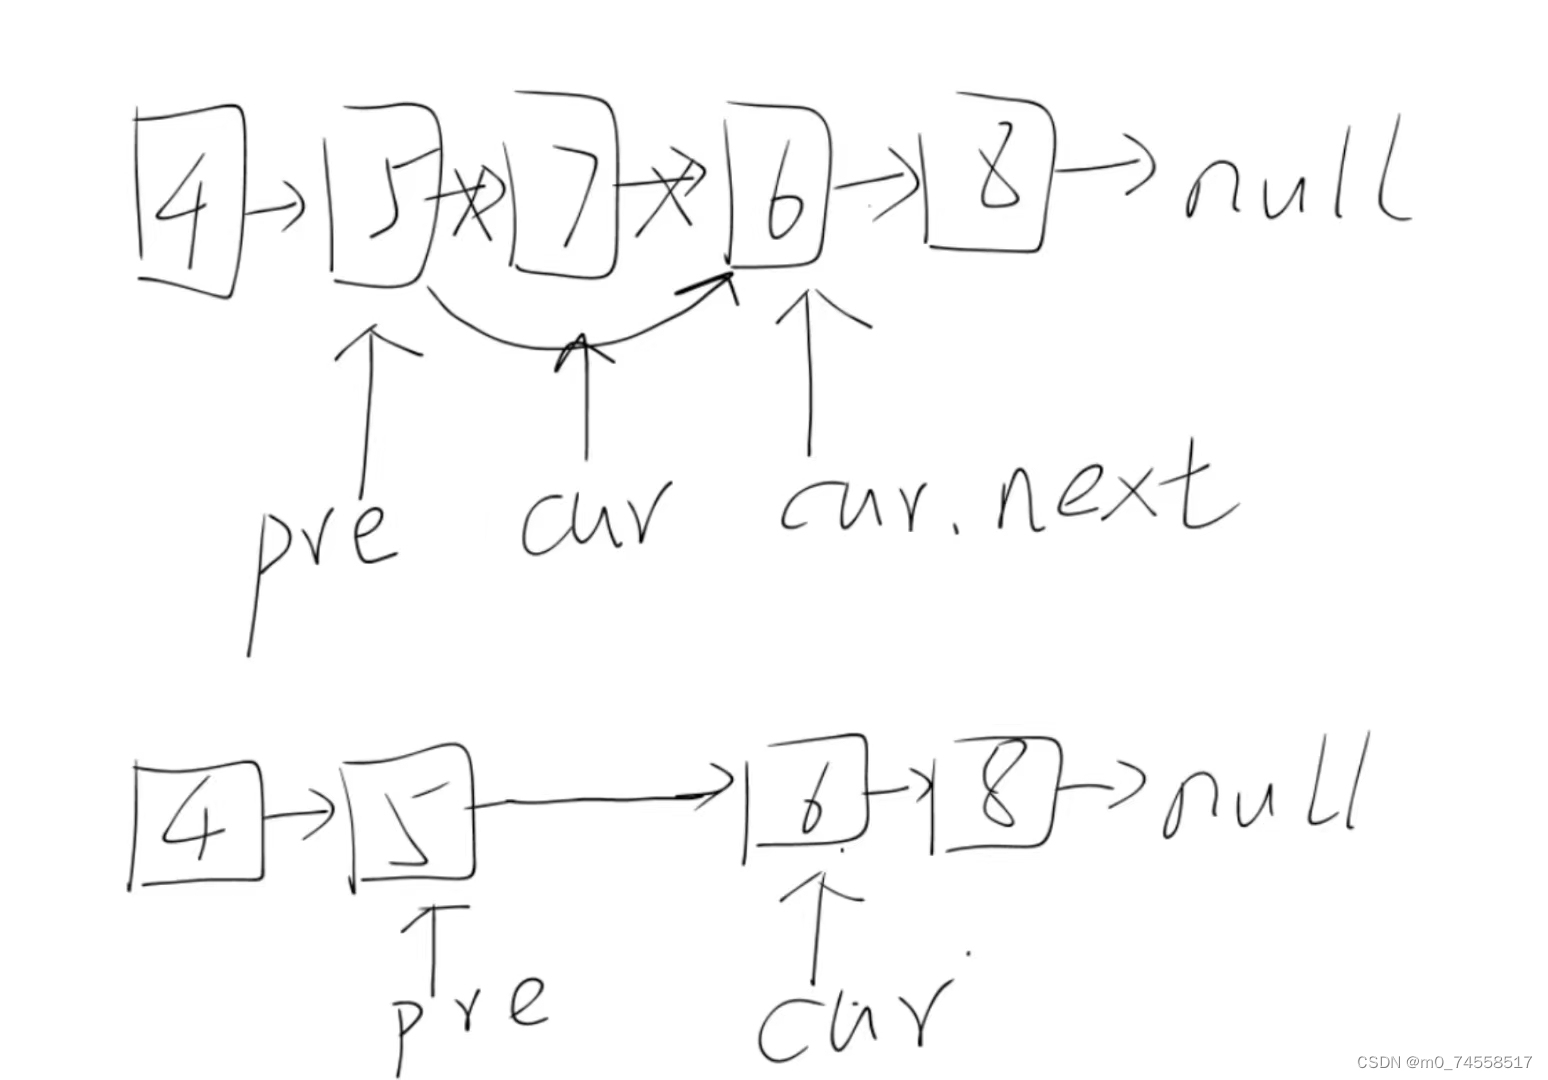 4 5 7 6 8 null
pre cur cur.next
4 5 6 8 null
pre cur
CSDN @m0_74558517